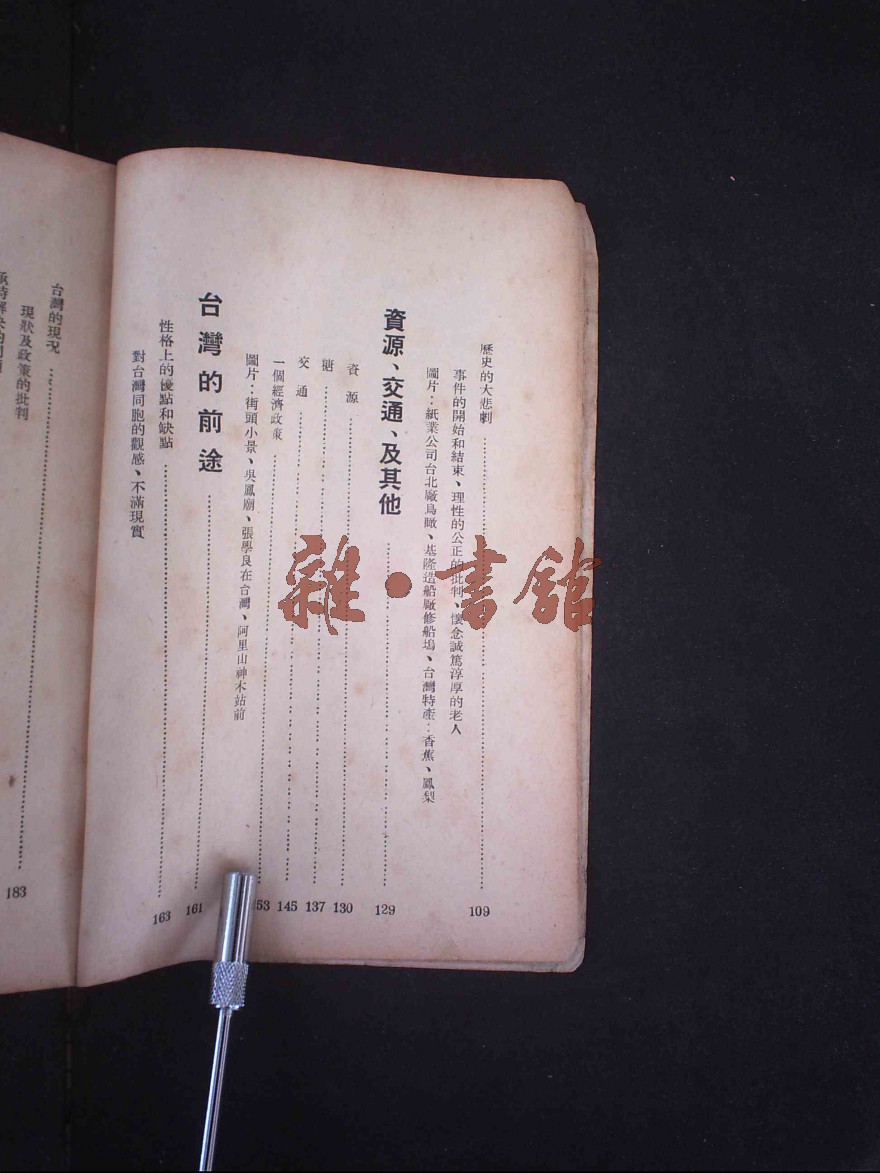 歷史的大悲劇 109
事件的開始和結束、理性的公正的批判、懷念誠篤淳厚的老人
圖片：紙業公司台北廠鳥瞰、基隆造船廠修船塢、台灣特產：香蕉、鳳梨
資源、交通、及其他 129
資源 130
糖 137
交通 145
一個經濟政策 153
圖片：街頭小景、吳鳳廟、張學良在台灣、阿里山神木站前
台灣的前途 161
性格上的優點和缺點 163
對台灣同胞的觀感、不滿現實
台灣的現況 183
現狀及政策的批判
雜·書館